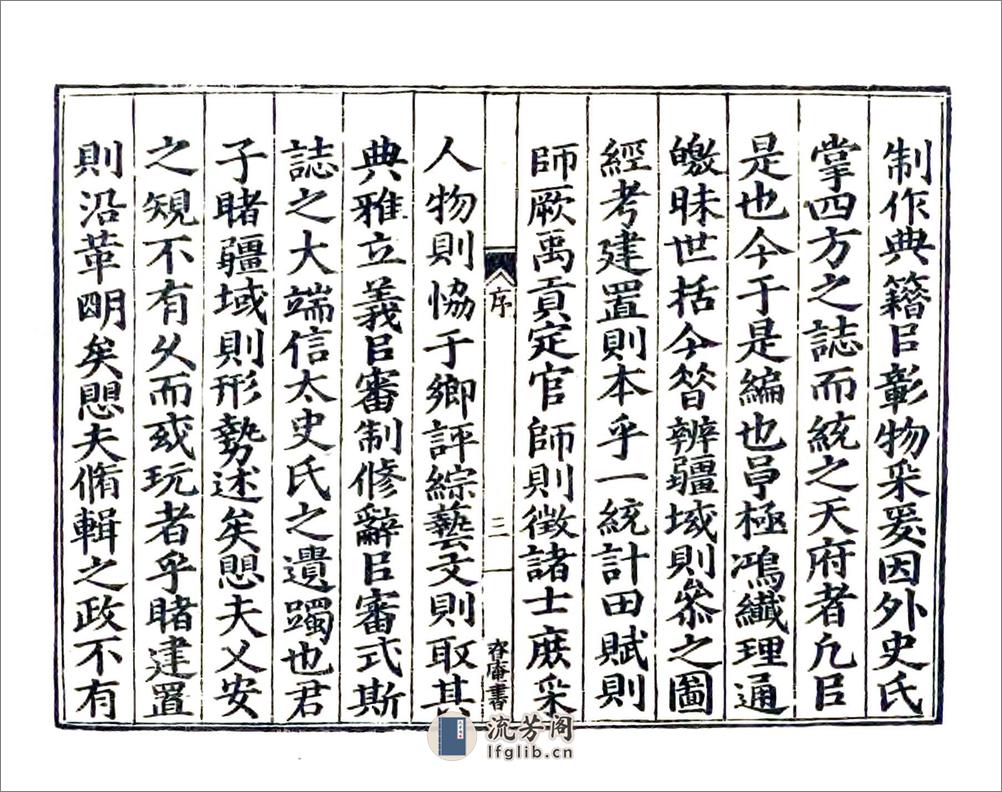 制作典籍㠯彰物采爰因外史氏
掌四方之誌而統之天府者凡㠯
是也今于是編也㫗極鴻纖理通
皦昧世括今昝辨疆域則叅之圖
經考建置則本乎一統計田賦則
師厥禹貢定官師則徵諸士庶采
序
三
存庵書
人物則恊于鄉評綜藝文則取其
典雅立義㠯審制修辭㠯審式斯
誌之大端信太史氏之遺躅也君
子睹疆域則形勢述矣愳夫乂安
之䂓不有乆而或玩者乎睹建置
則沿革明矣愳夫脩輯之政不有
流芳阁
lfglib.cn